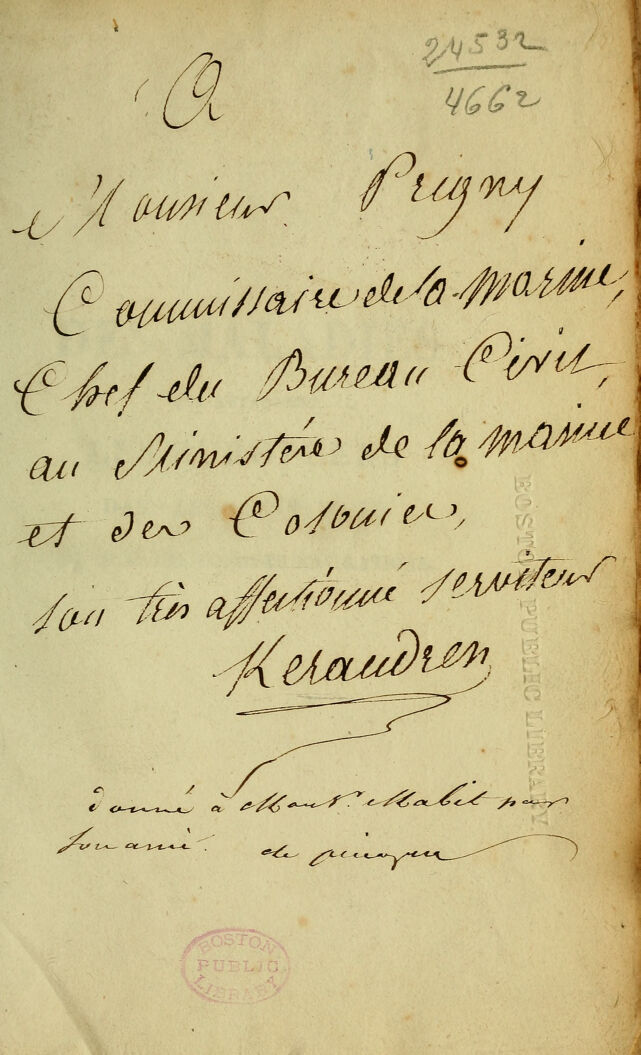 24532
4662
A
Monsieur Prigny
Commissaire de la marine,
Chef du Bureau Civil,
au Ministère de la marine
et des Colonies,
son très affectionné serviteur
Keraudren
donné à Monsr. Mabit par
son ami. de
BOSTON PUBLIC LIBRARY
BOSTON
PUBLIC
LIBRARY